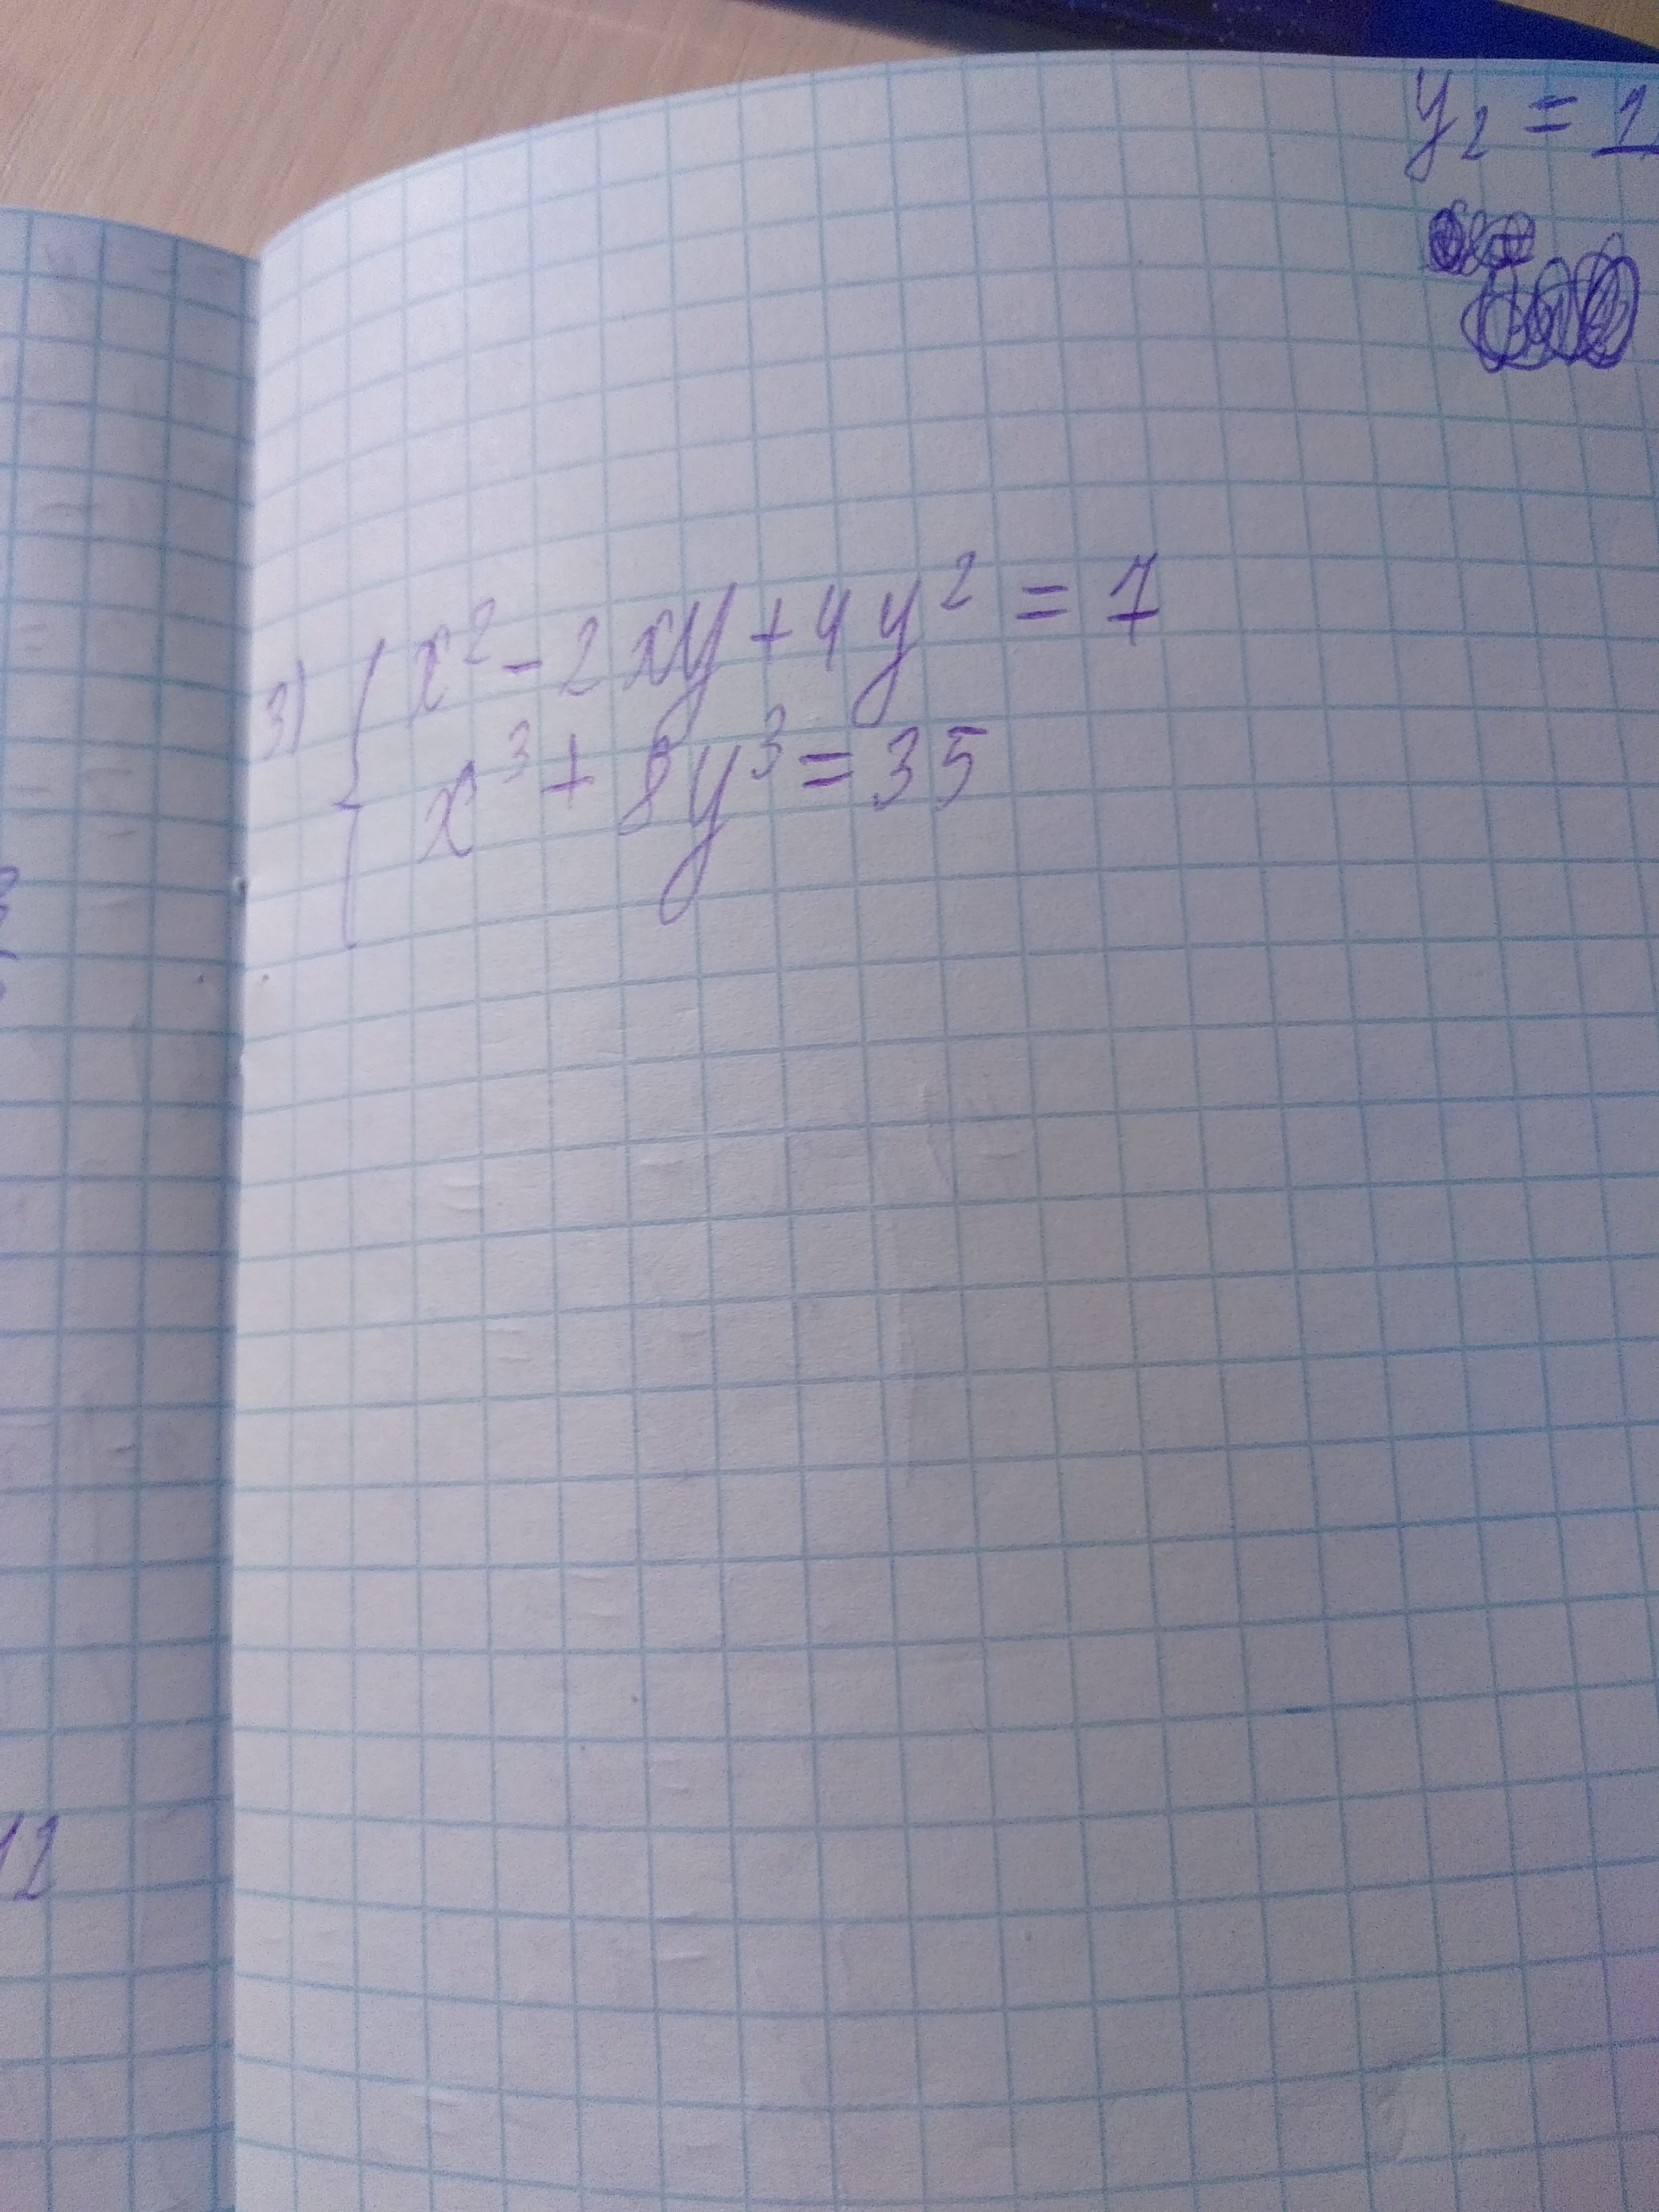 y₂ = 1
3) { x² - 2xy + 4y² = 7
x³ + 8y³ = 35
12